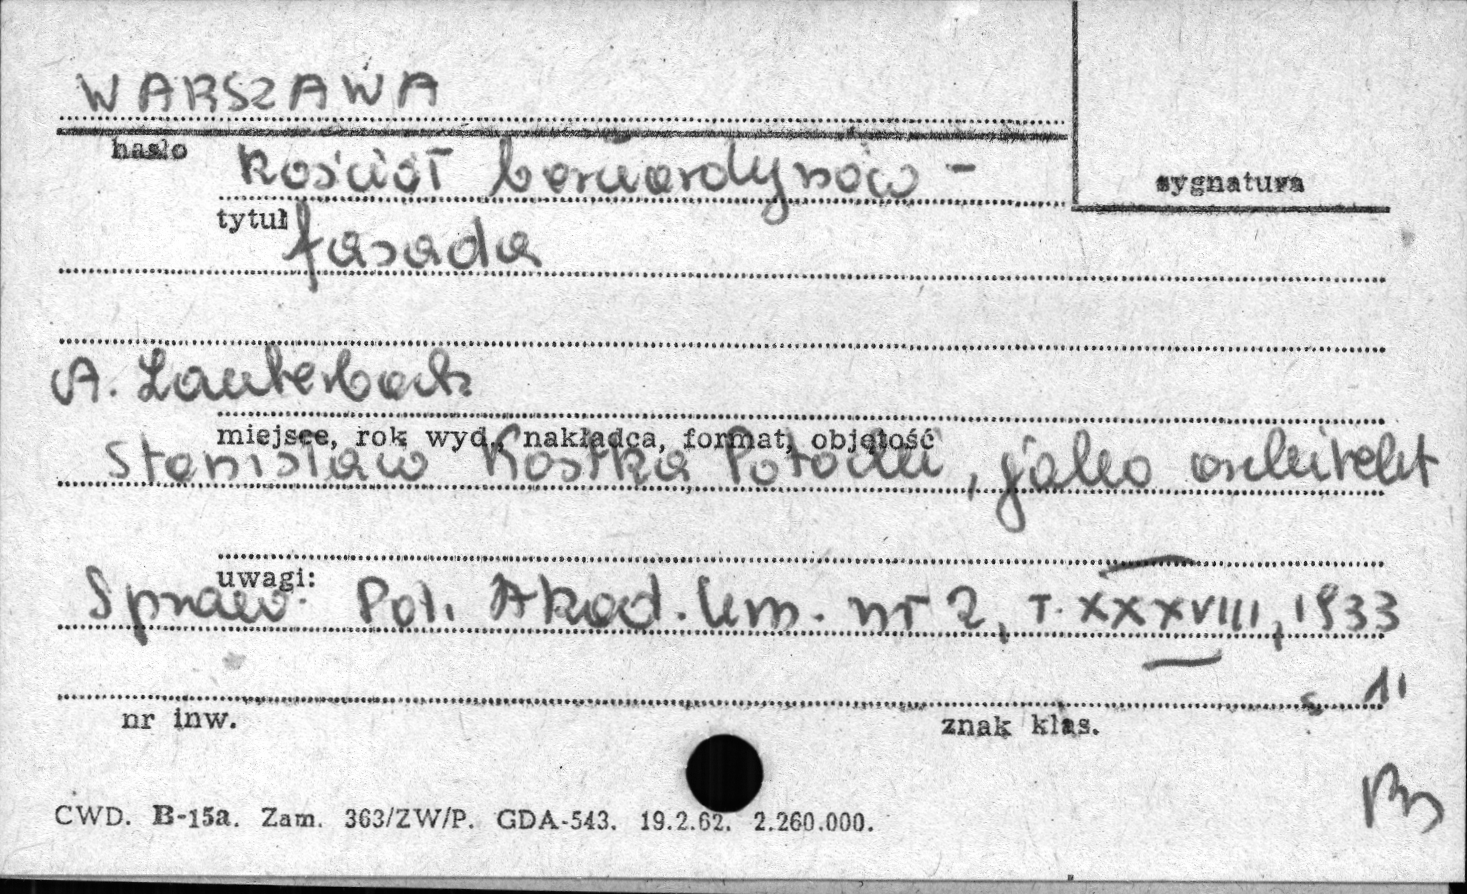 WARSZAWA
hasło
Kościół bernardynów -
sygnatura
tytuł
fasada
A. Lauterbach
miejsce, rok wyd., nakładca, format, objętość
Stanisław Kostka Potocki, jako architekt
uwagi:
Spraw. Pol. Akad. Um. nr 2, T. XXXVIII, 1933
s. 11
nr inw.
znak klas.
CWD. B-15a. Zam. 363/ZW/P. GDA-543. 19.2.62. 2.260.000.